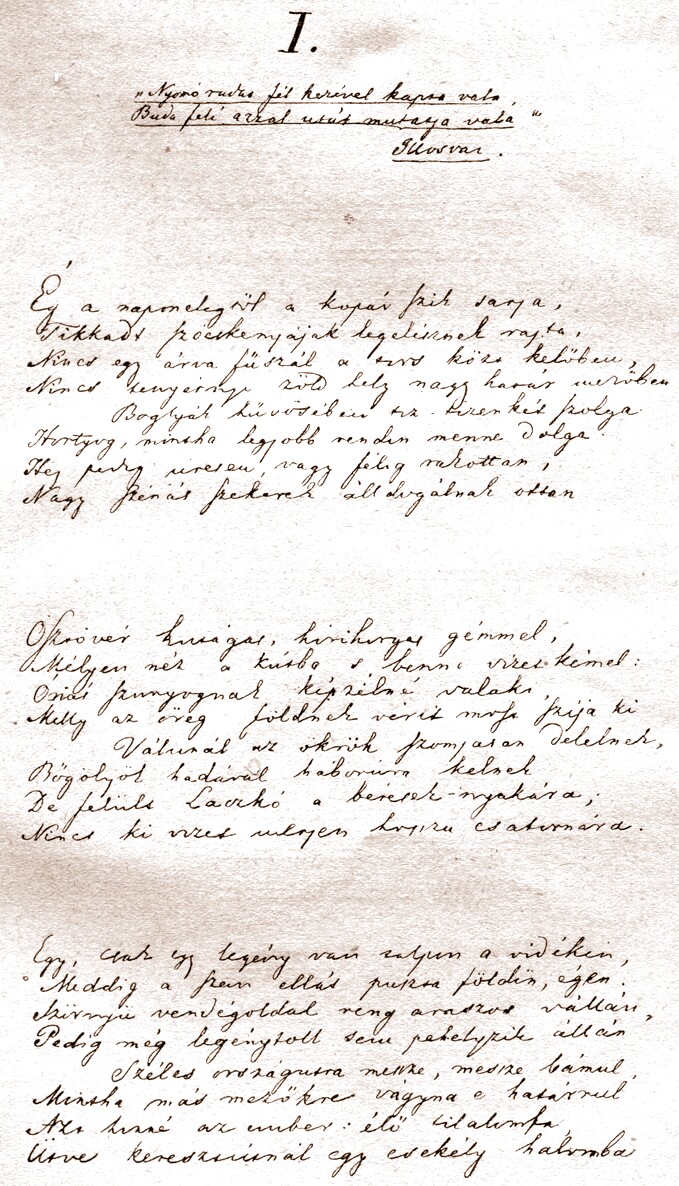 I.
„Nyomó rudat fél kezével kapta vala,
Buda felé azzal utát mutatja vala“
Illosvai.
Ég a napmelegtöl a kopár szik sarja,
Tikkadt szöcskenyájak legelésznek rajta,
Nincs egy árva fűszál a tors közt kelőben,
Nincs tenyérnyi zöld hely nagy határ mezőben
Boglyák hüvösében tiz-tizenkét szolga
Hortyog, mintha legjobb rendin menne dolga.
Hej pedig üresen, vagy félig rakottan,
Nagy szénás szekerek álldogálnak ottan
Ösztövér kutágas, hórihorgas gémmel,
Mélyen néz a kútba s benne vizet kémel:
Óriás szunyognak képzelné valaki
Melly az öreg földnek vérit most szíja ki
Válunál az ökrök szomjasan delelnek,
Bögölyök hadával háborúra kelnek
De felült Laczkó a béresek nyakára;
Nincs ki vizet merjen hosszu csatornára.
Egy, csak egy legény van talpon a vidéken,
Meddig a szem ellát puszta földin, égen.
Szörnyü vendégoldal reng araszos vállán,
Pedig még legénytoll sem pehelyzik állán
Széles országutra messze, messze bámul,
Mintha más mezőkre vágyna e határrul
Azt hinné az ember: élő tilalomfa,
Ütve keresztútnál egy csekély halomba